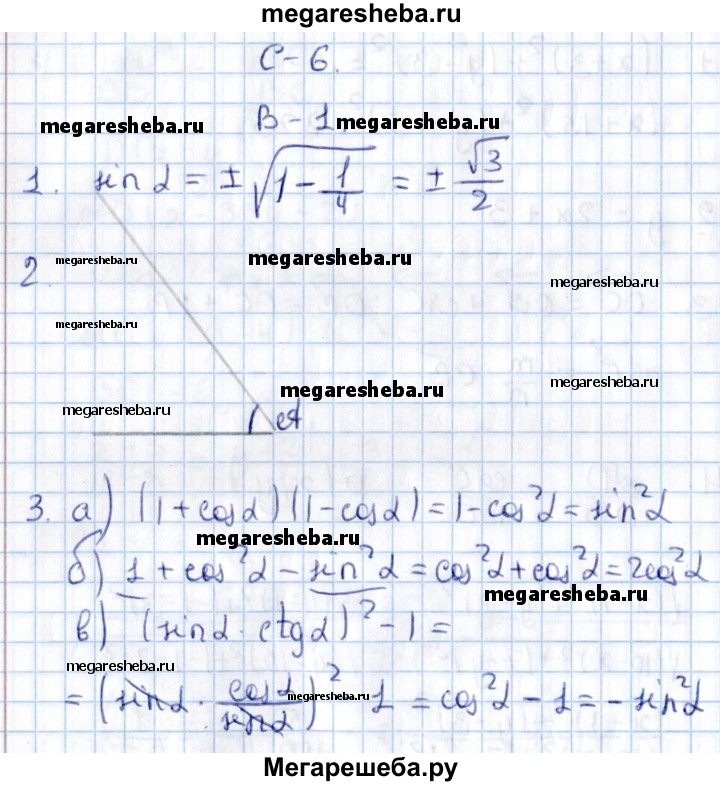 megaresheba.ru
С-6.
В-1 megaresheba.ru
megaresheba.ru
1. sin α = ± √(1 - 1/4) = ± √3/2
2. megaresheba.ru megaresheba.ru
megaresheba.ru
megaresheba.ru
megaresheba.ru megaresheba.ru
megaresheba.ru A
3. а) (1+cosα)(1-cosα)=1-cos²α=sin²α
megaresheba.ru
б) 1+cos²α-sin²α=cos²α+cos²α=2cos²α
megaresheba.ru
в) (sinα·ctgα)²-1=
megaresheba.ru
=(sinα·cosα/sinα)²-1=cos²α-1=-sin²α
megaresheba.ru
Мегарешеба.ру